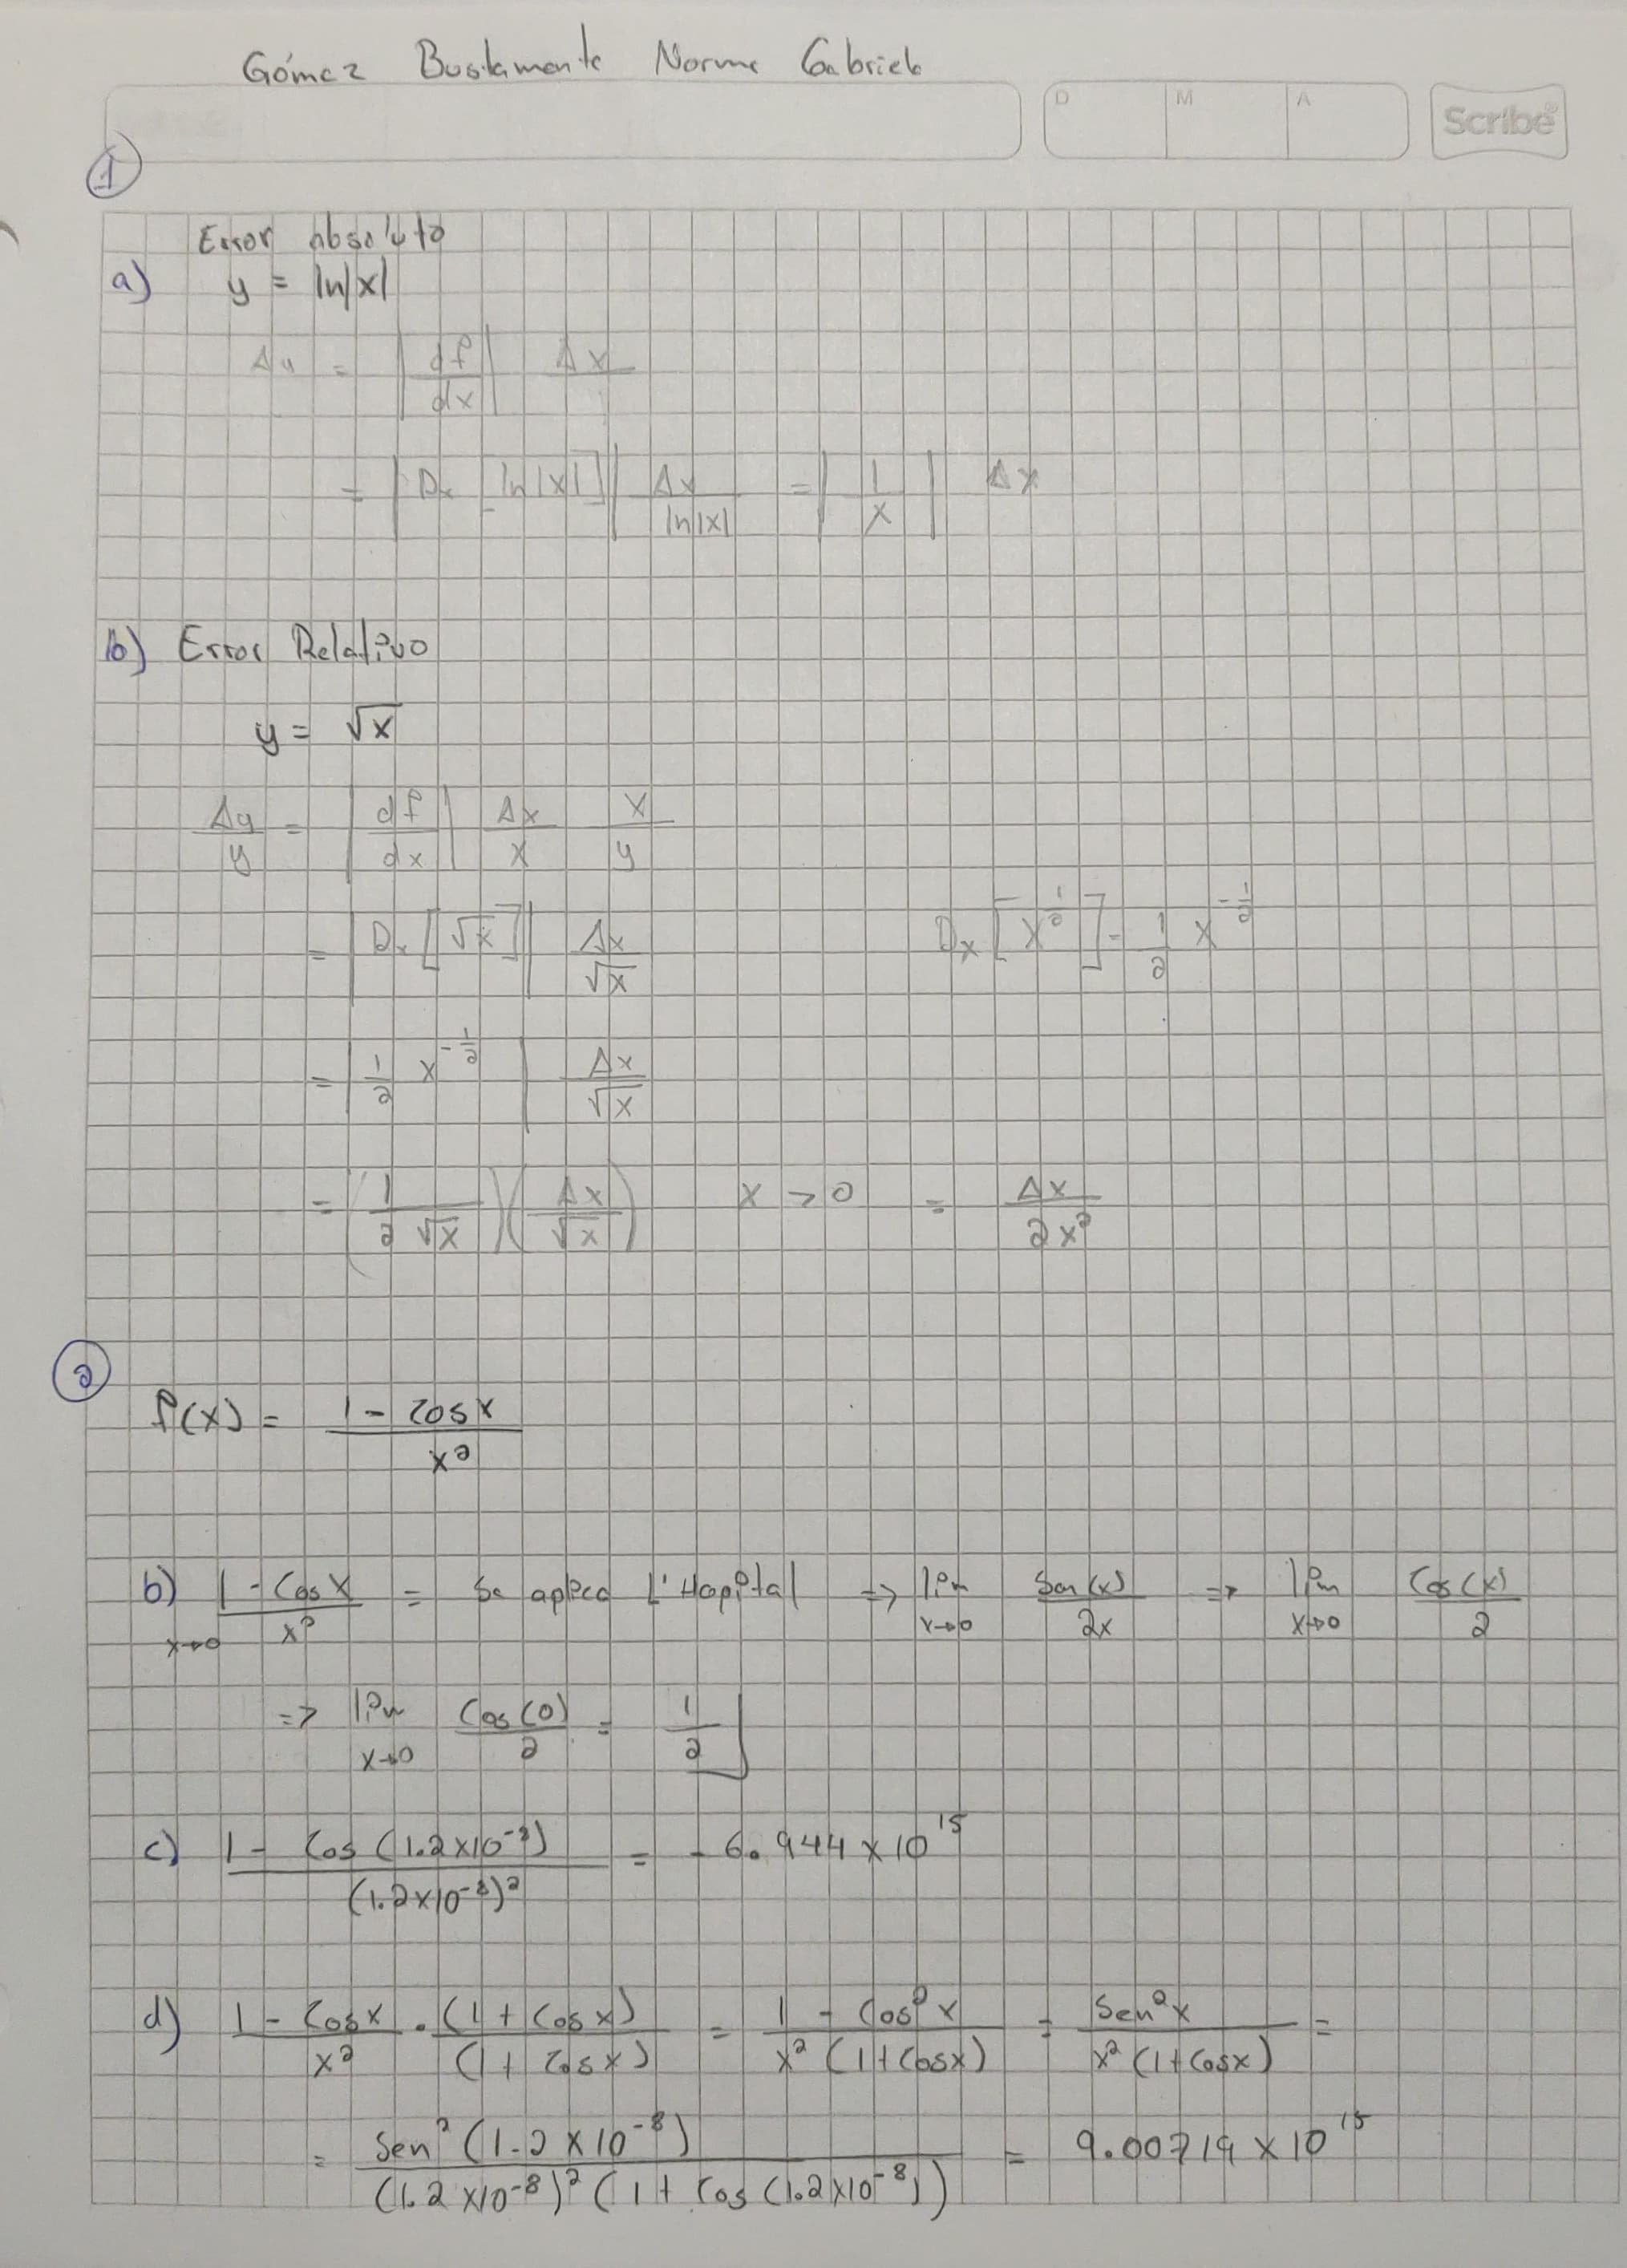 Gómez Bustamante Norma Gabriela
D M A Scribe®
1
Error absoluto
a) y = ln|x|
Δy = |df/dx| Δx
= |Dx [ln|x|]| Δx/ln|x| = |1/x| Δx
b) Error Relativo
y = √x
Δy/y = |df/dx| Δx/x x/y
= |Dx [√x]| Δx/√x Dx [x^(1/2)] = 1/2 x^(-1/2)
= |1/2 x^(-1/2)| Δx/√x
= (1/(2√x)) (Δx/√x) x > 0 = Δx/(2x²)
2
f(x) = (1 - cos x)/x²
b) x→0 (1 - Cos x)/x² = Se aplica L'Hopital => lim x→0 Sen(x)/2x => lim x→0 Cos(x)/2
=> lim x→0 Cos(0)/2 = 1/2
c) (1 - Cos (1.2x10^-8))/(1.2x10^-8)² = - 6.944 x 10^15
d) (1 - Cos x)/x² · (1 + Cos x)/(1 + Cos x) = (1 - Cos² x)/(x² (1 + Cosx)) = Sen²x/(x² (1 + Cosx)) =
= Sen² (1.2 x 10^-8)/((1.2 x10^-8)² (1 + Cos (1.2x10^-8))) = 9.00719 x 10^15